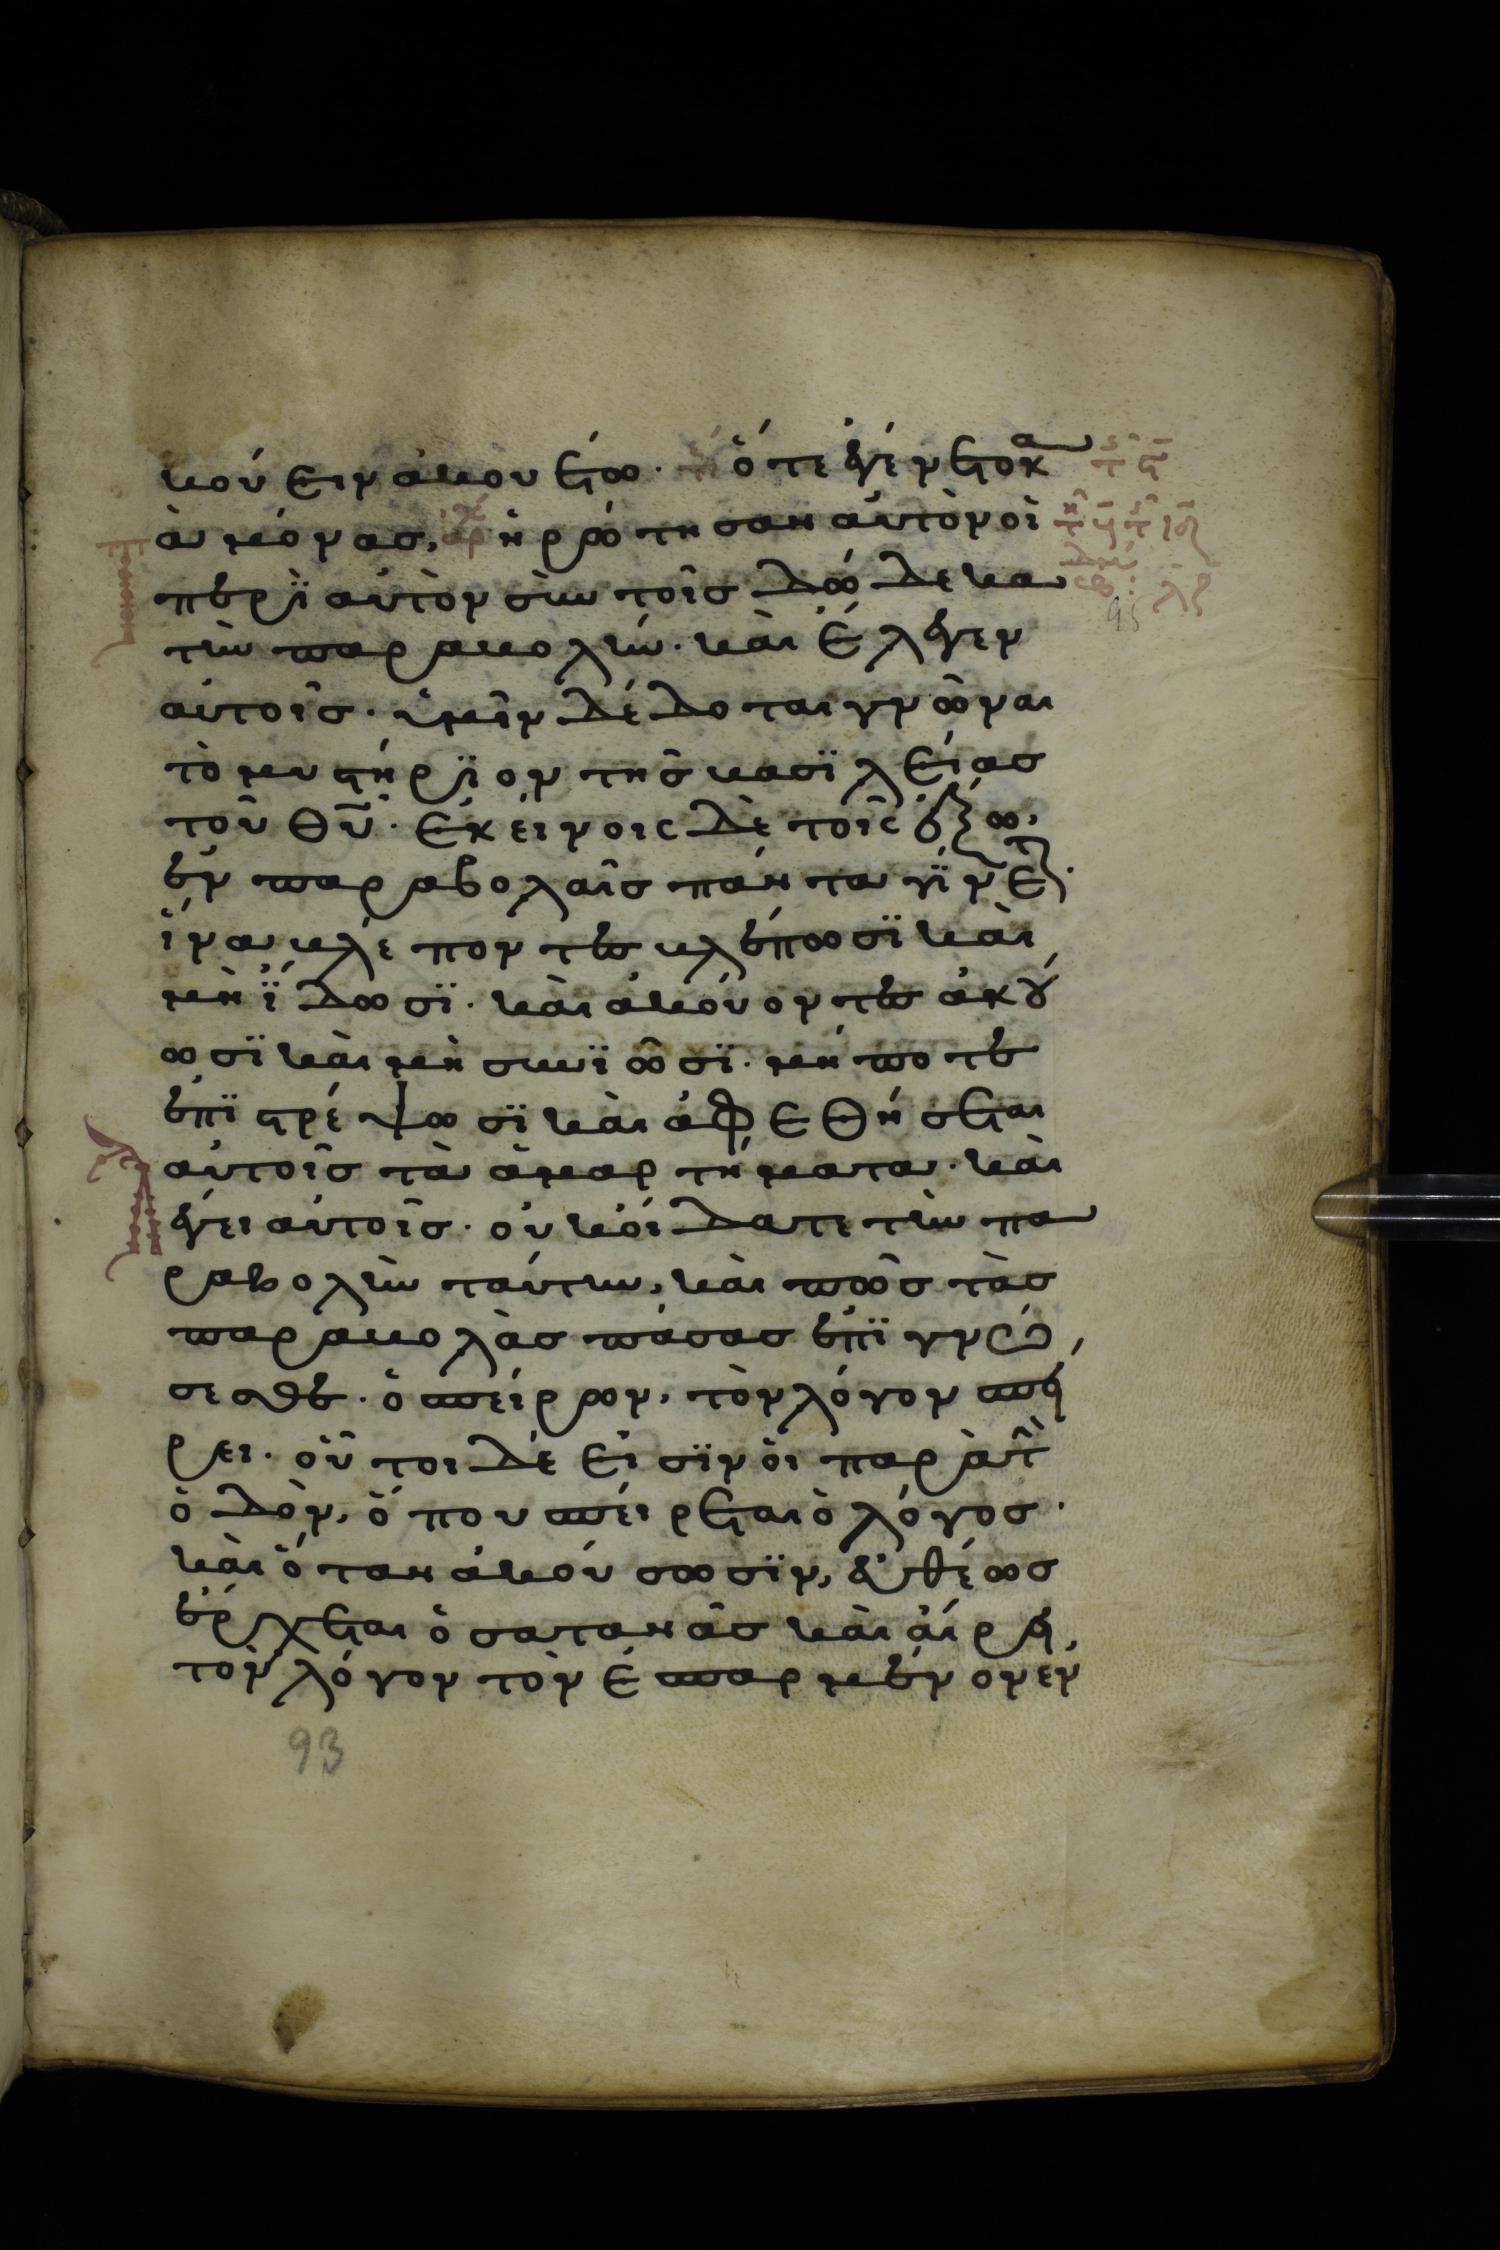 κούειν ἀκουέτω. ὅτε ἐγένετο κα
τὰ μόνας, ἠρώτησαν αὐτὸν οἱ
περὶ αὐτὸν σὺν τοῖς δώδεκα
τὴν παραβολήν. καὶ ἔλεγεν
αὐτοῖς. ὑμῖν δέδοται γνῶναι
τὸ μυστήριον τῆς βασιλείας
τοῦ θῦ. ἐκείνοις δὲ τοῖς ἔξω,
ἐν παραβολαῖς πάντα γίνετ
ἵνα βλέποντες βλέπωσι καὶ
μὴ ἴδωσι. καὶ ἀκούοντες ἀκού
ωσι καὶ μὴ συνιῶσι. μήποτε
ἐπιστρέψωσι καὶ ἀφεθήσεται
αὐτοῖς τὰ ἁμαρτήματα. καὶ
λέγει αὐτοῖς. οὐκ οἴδατε τὴν πα
ραβολὴν ταύτην, καὶ πῶς τὰς
παραβολὰς πάσας ἐπιγνώ
σεσθε. ὁ σπείρων, τὸν λόγον σπεί
ρει. οὗτοι δέ εἰσιν οἱ παρὰ τὴν
ὁδὸν, ὅπου σπείρεται ὁ λόγος.
καὶ ὅταν ἀκούσωσιν, εὐθέως
ἔρχεται ὁ σατανᾶς καὶ αἴρει
τὸν λόγον τὸν ἐσπαρμένον ἐν
93